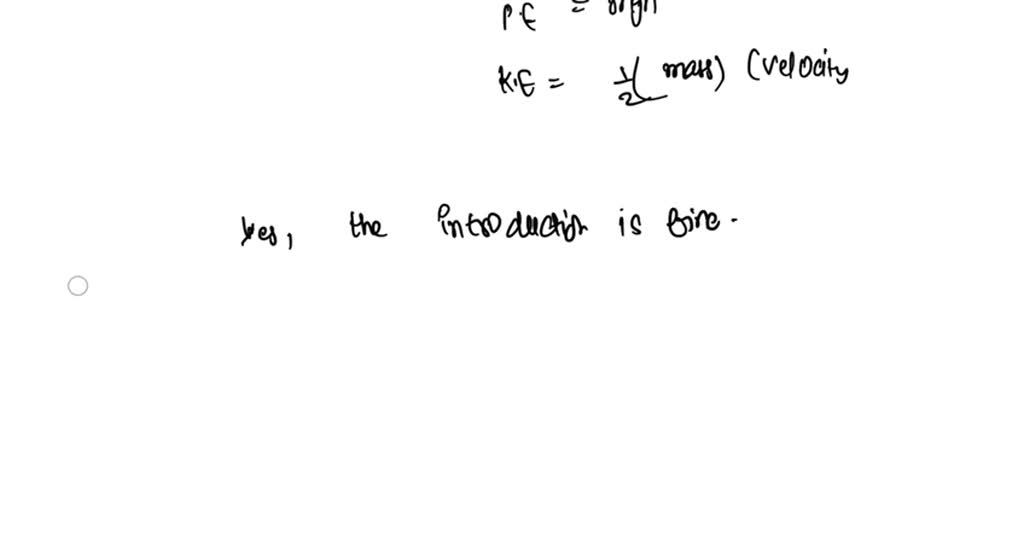 P.E =
K.E = 1/2 (mass) (velocity
Yes, the introduction is fine.